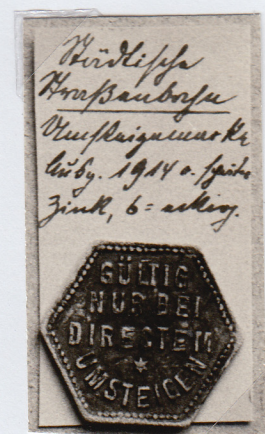 Städtische
Straßenbahn
Umsteigemarke
Ausg. 1914 o. später
Zink, 6=eckig.
GÜLTIG
NUR BEI
DIRECTEM
UMSTEIGEN